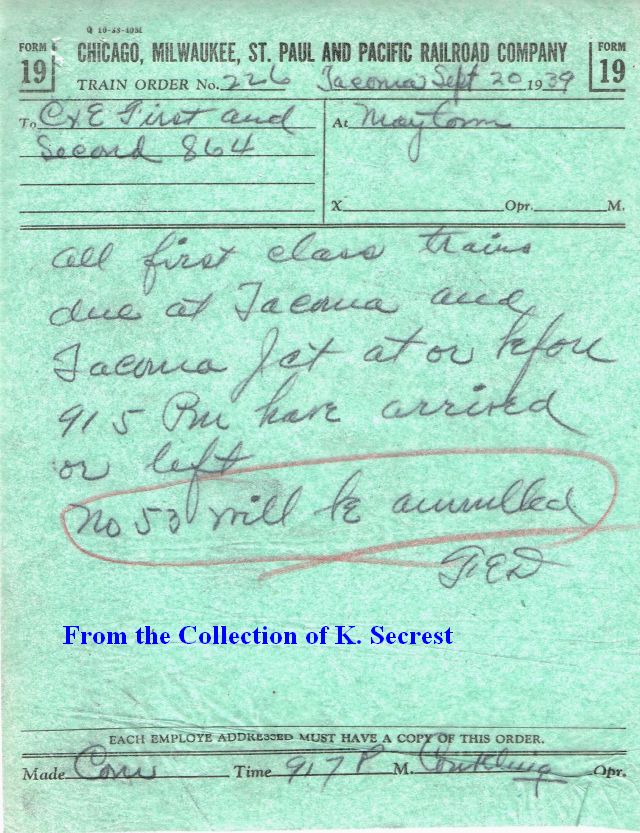 Q 10-38-40M
FORM 19
CHICAGO, MILWAUKEE, ST. PAUL AND PACIFIC RAILROAD COMPANY
FORM 19
TRAIN ORDER No. 226 Tacoma Sept 20 1939
To C&E First and
Second 864
At Maytown
X Opr. M.
All first class trains
due at Tacoma and
Tacoma Jct at or before
915 Pm have arrived
or left
No 53 will be annulled
From the Collection of K. Secrest
EACH EMPLOYE ADDRESSED MUST HAVE A COPY OF THIS ORDER.
Made Com Time 917 P M. Opr.